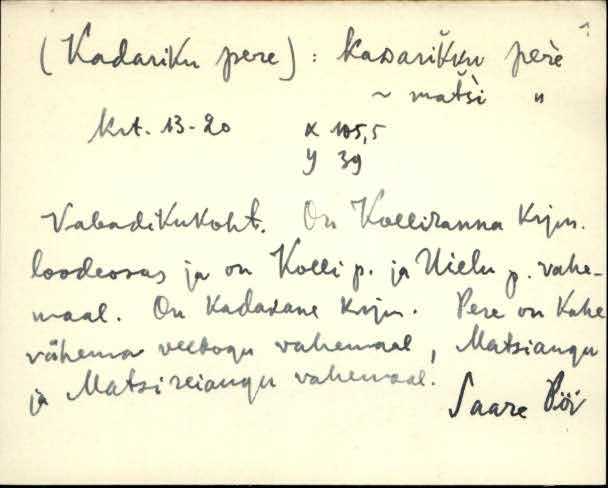 (Kadariku pere) : kadarikku pere
~ matsi "
Krt. 13-20 x 105,5
y 39
Vabadikukoht. On Kolliranna kyn.
loodeosas ja on Kolli p. ja Uielu p. vahe-
maal. On kadakane kyn. Pere on kahe
vähema veelogu vahemaal, Matsiangu
ja Matsireiangu vahemaal.
Saare Pöi